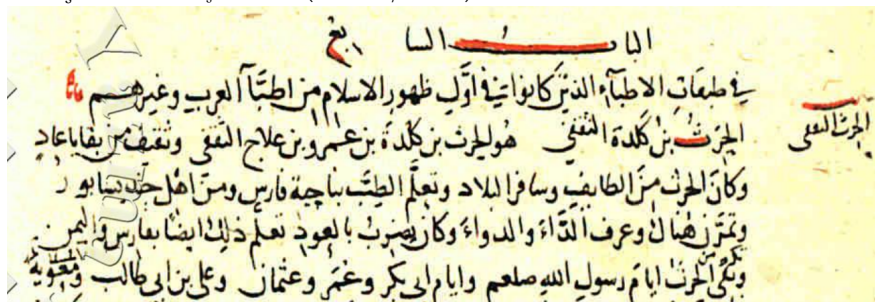 الباب السابع
في طبقات الاطبآء الذين كانوا في اوّل ظهور الاسلام من اطبّآ العرب وغيرهم
الحرث بن كَلَدة الثقفي هو الحرث بن كلدة بن عمرو بن علاج الثقفي وثقيف من بقايا عاد
الحرث الثقفى
وكان الحرث من الطايف وسافر البلاد وتعلّم الطبّ بناحية فارس ومن اهل جنديسابور
وتمرّن هناك وعرف الدّاء والدواء وكان يضرب بالعود تعلّم ذلك ايضًا بفارس واليمن
وبقى الحرث ايام رسول الله صلعم وايام ابى بكر وعمر وعثمان وعلى بن ابى طالب ومعوية